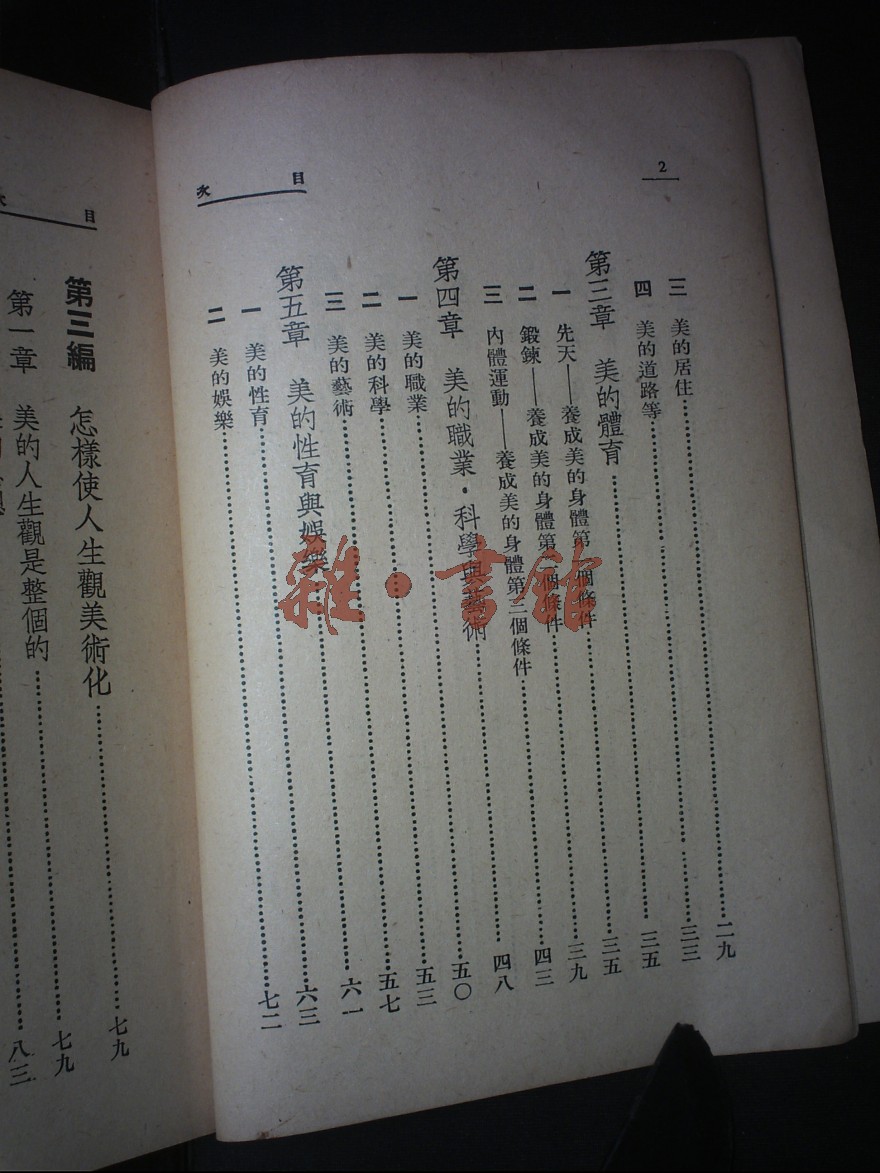 2
目次
三 美的居住……二九
四 美的道路等……三三
第三章 美的體育……三五
一 先天——養成美的身體第一個條件……三五
二 鍛鍊——養成美的身體第二個條件……三九
三 內體運動——養成美的身體第三個條件……四三
第四章 美的職業·科學與藝術……四八
一 美的職業……五〇
二 美的科學……五三
三 美的藝術……五七
第五章 美的性育與娛樂……六一
一 美的性育……六三
二 美的娛樂……七二
目次
第三編 怎樣使人生觀美術化……七九
第一章 美的人生觀是整個的……七九
八三
雜·書館